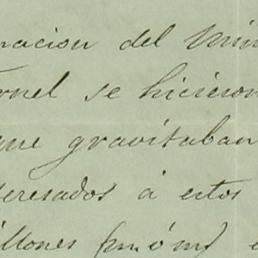 macion del Min
ornel se hicieron
que gravitaban
teresados á estos
illones (m.ó m)